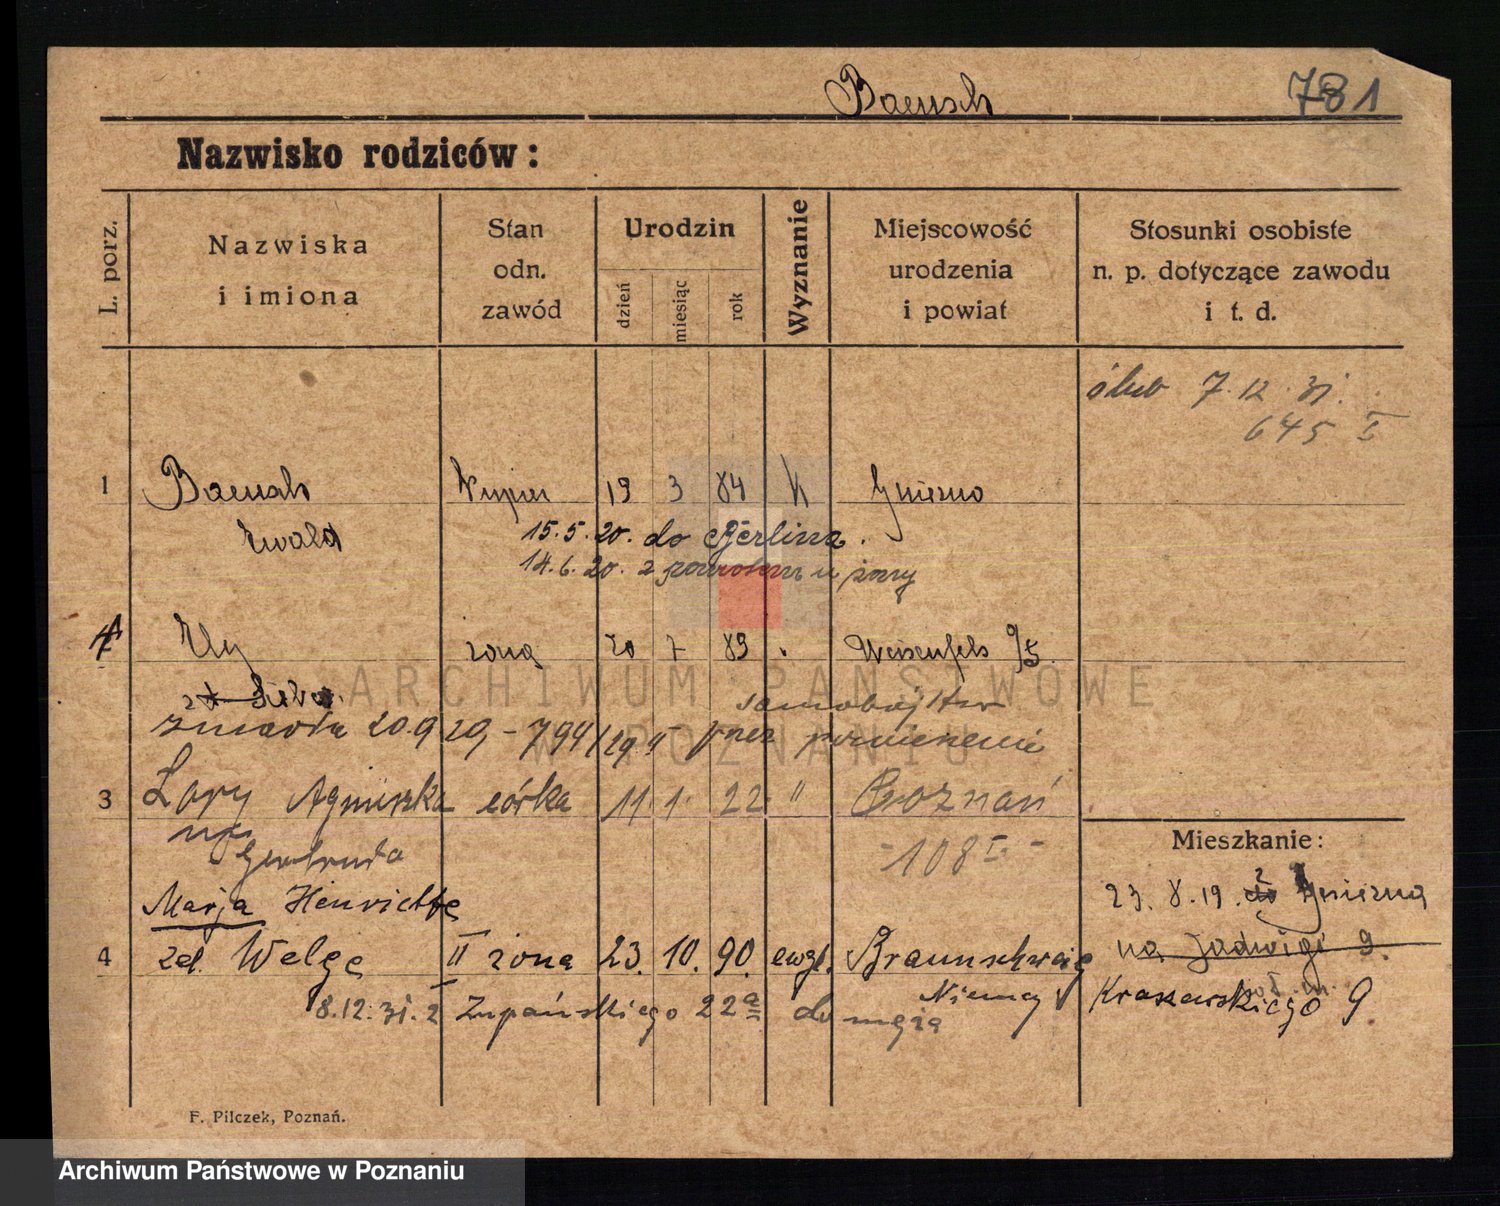 Baensch 781
Nazwisko rodziców:
L. porz.
Nazwiska
i imiona
Stan
odn.
zawód
Urodzin
dzień
miesiąc
rok
Wyznanie
Miejscowość
urodzenia
i powiat
Stosunki osobiste
n. p. dotyczące zawodu
i t. d.
ślub 7.12.31.
645 I
1 Baensch Kupiec 19 3 84 Gniezno
Ewald 15.5.20. do Berlina.
14.6.20. z powrotem u żony
Elly żona 20 7 89 Weissenfels
samobójstw
zmarła 20.9 29, - 794/29 przez
3 Lory Agnieszka córka 11 1. 22 " Poznań
Gertruda - 108 I. -
Mieszkanie:
Marja Henriette 23.8.19. z Gniezna
4 Welge II żona 23. 10. 90. ewgl. Braunschweig na Jadwigi 9.
Niemcy Kraszewskiego 9.
8.12.31. z Żupańskiego 22a do męża
F. Pilczek, Poznań.
ARCHIWUM PAŃSTWOWE
W POZNANIU
Archiwum Państwowe w Poznaniu